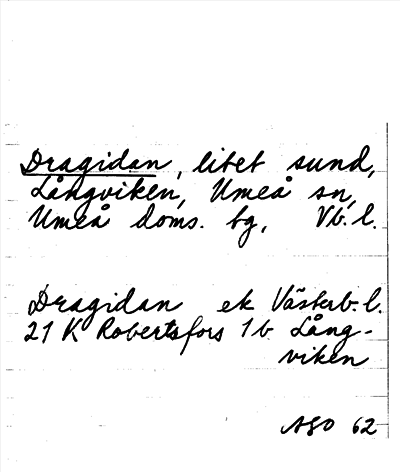 Dragidan, litet sund,
Långviken, Umeå sn,
Umeå doms. bg, Vb. l.
Dragidan ek Västerb. l.
21 K Robertsfors 1 b Lång-
viken
ASO 62